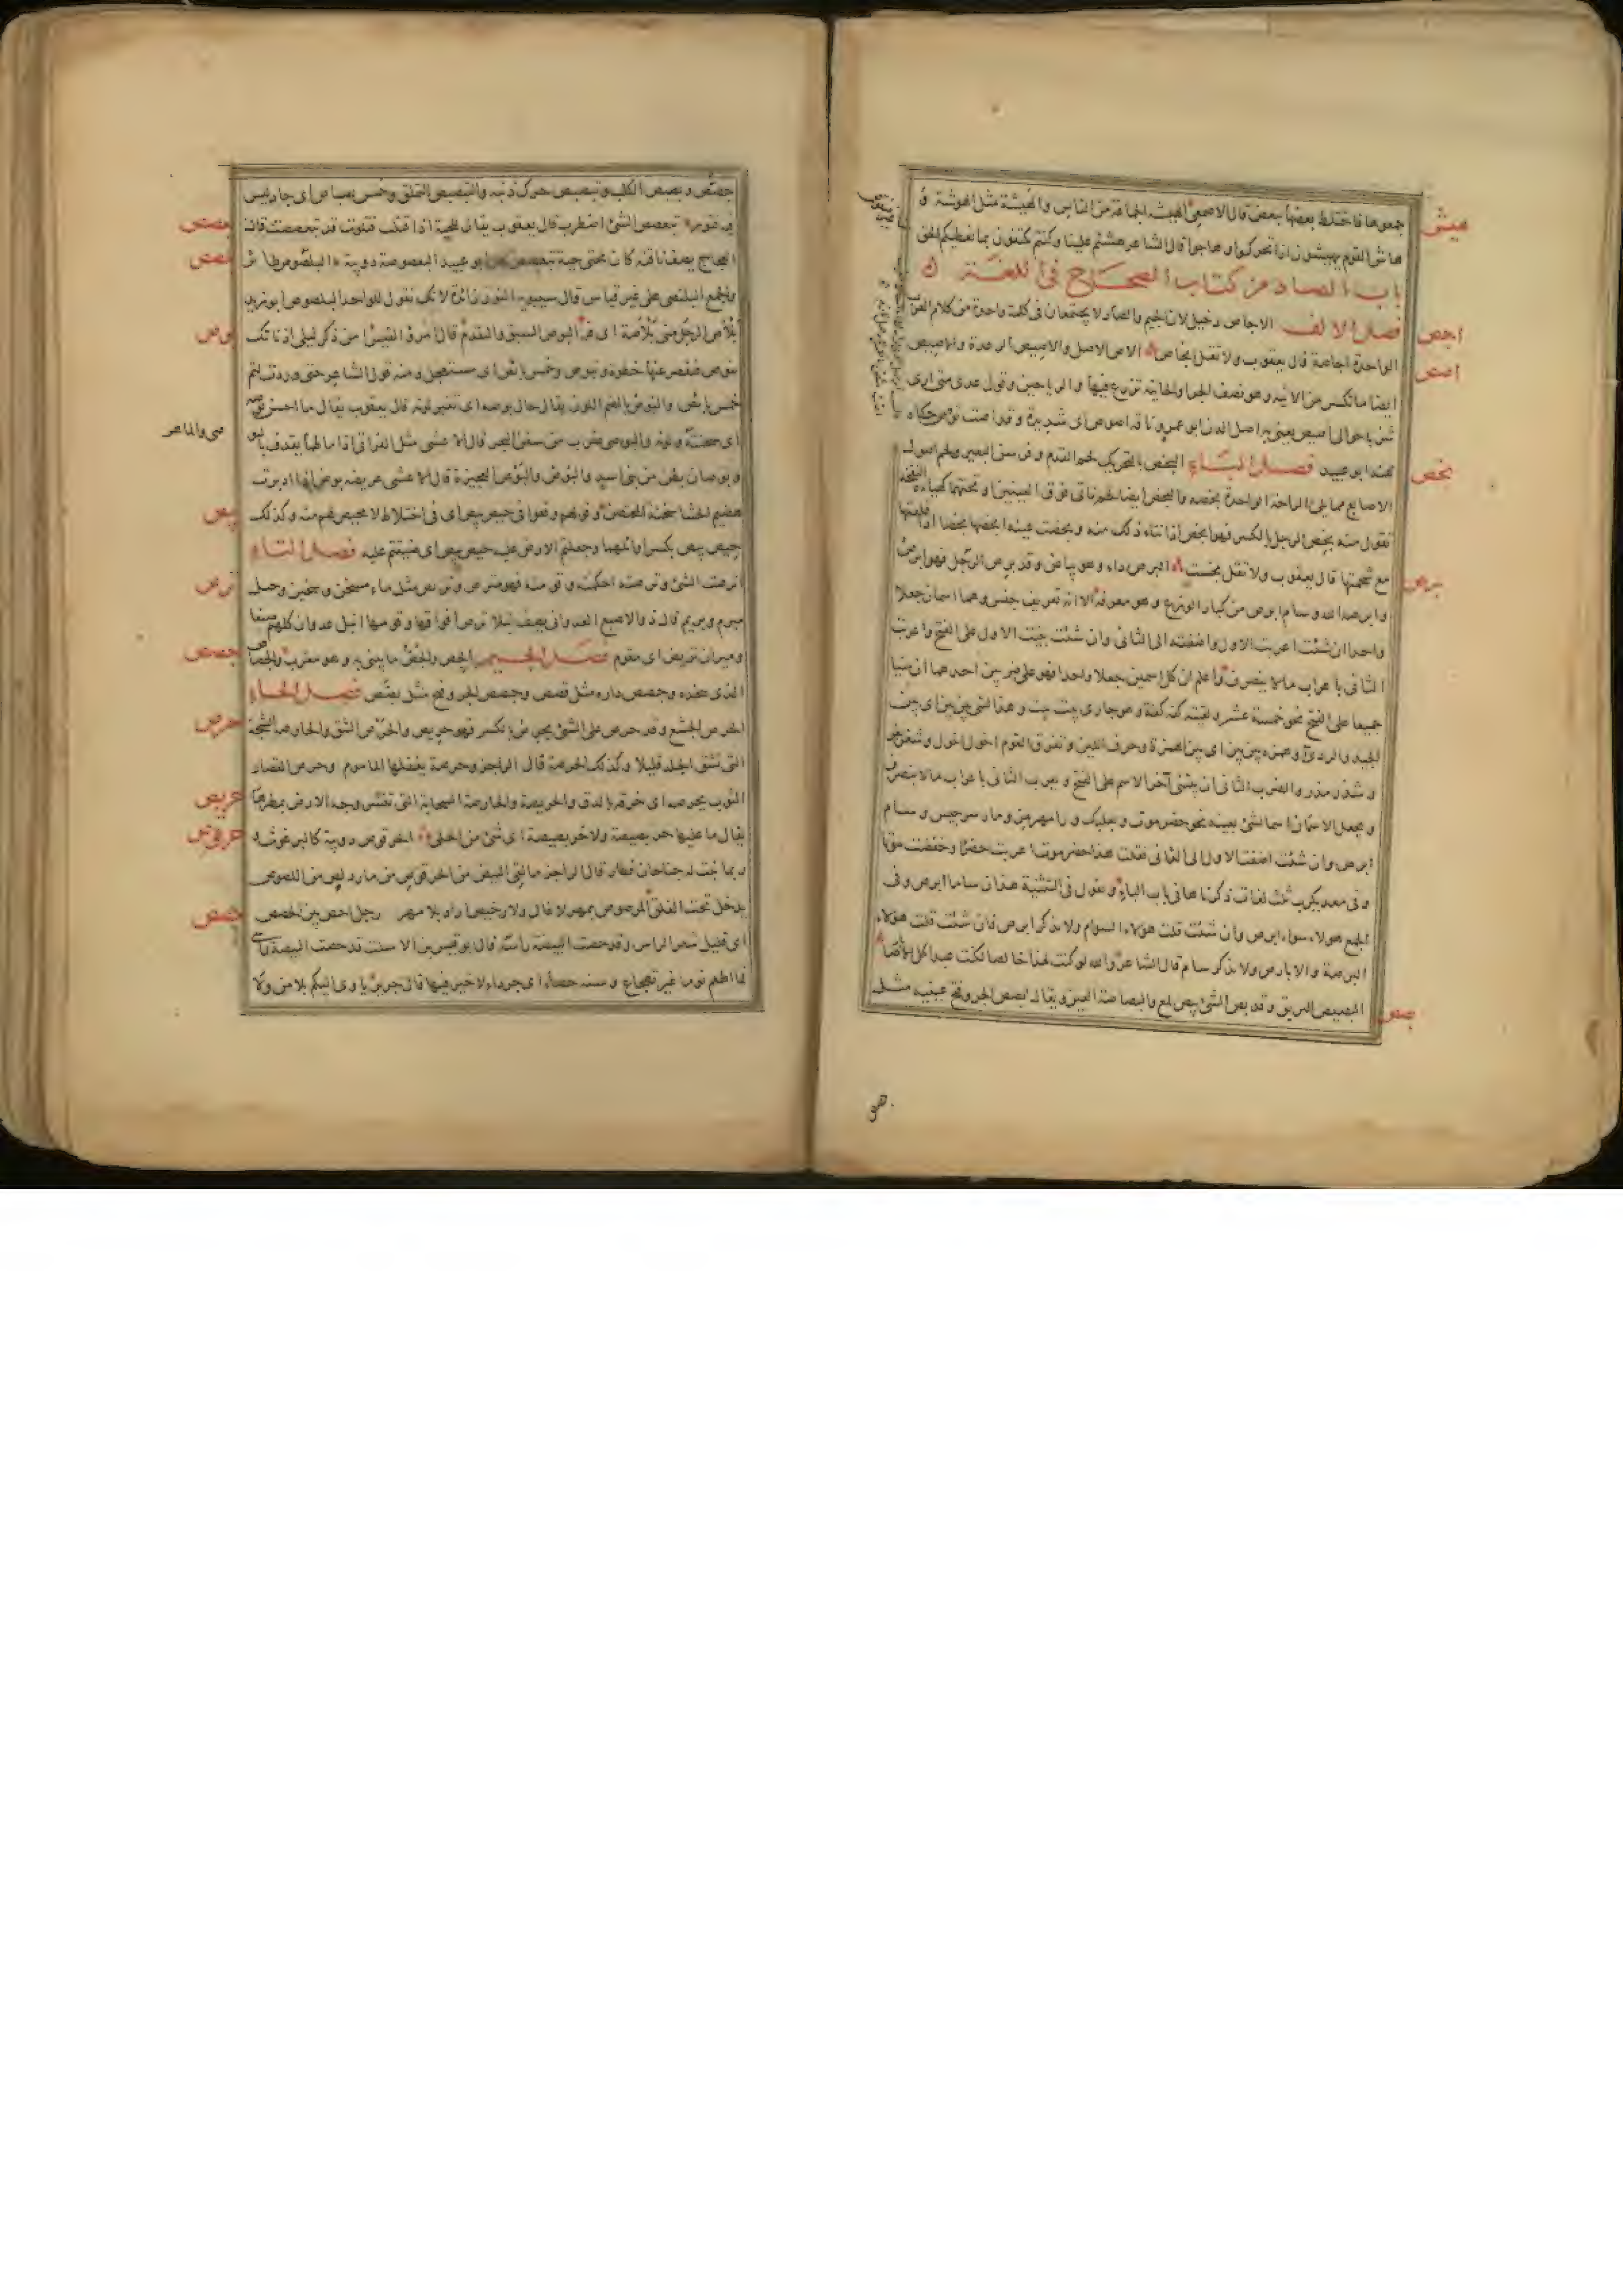 هيش
جمعوها فاختلط بعضها ببعض قال الاصمعي الهيشة الجماعة من الناس والهيشة مثل الهوشة و
هاش القوم يهيشون اذا تحركوا وهاجوا قال الشاعر هشتم علينا وكنتم تكتفون بما نعطيكم الحق
باب الصاد من كتاب الصحاح في اللغة
اجص
فصل الالف الاجاص دخيل لان الجيم والصاد لا يجتمعان في كلمة واحدة من كلام العرب
الواحدة اجاصة قال يعقوب ولا تقل انجاص الاص الاصل والاصيص الرعدة والاصيص
اصص
ايضا ما تكسر من الانية وهو نصف الجرة والخابية تزرع فيها الرياحين وقول عدي متى ارى
شربا حوالي اصيص يعني به اصل الدن ابو عمرو ناقة اصوص اي شديدة وقد اصت تؤص حكاه
عنه ابو عبيد فصل الباء البخص بالتحريك لحم القدم وفرسن البعير ولحم اصول
بخص
الاصابع مما يلي الراحة الواحدة بخصة والبخص ايضا لحم ناتئ فوق العينين او تحتهما كهيئة النفخة
تقول منه بخص الرجل بالكسر فهو ابخص اذا نتاء ذلك منه وبخصت عينه ابخصها بخصا اذا قلعتها
مع شحمتها قال يعقوب ولا تقل بخست البرص داء وهو بياض وقد برص الرجل فهو ابرص
برص
وابرصه الله وسام ابرص من كبار الوزغ وهو معرفة الا انه تعريف جنس وهما اسمان جعلا
واحدا ان شئت اعربت الاول واضفته الى الثاني وان شئت بنيت الاول على الفتح واعربت
الثاني باعراب ما لا ينصرف واعلم ان كل اسمين جعلا واحدا فهو على ضربين احدهما ان يبنيا
جميعا على الفتح نحو خمسة عشر ولقيته كفة كفة وهو جاري بيت بيت وهذا الشئ بين بين اي بين
الجيد والردئ وهمزة بين بين اي بين الهمزة وحرف اللين وتفرق القوم اخول اخول وشغر بغر
وشذر مذر والضرب الثاني ان يبنى آخر الاسم على الفتح ويعرب الثاني باعراب ما لا ينصرف
ويجعل الاسمان اسما لشئ بعينه نحو حضرموت وبعلبك ورامهرمز ومارسرجيس وسام
ابرص وان شئت اضفت الاول الى الثاني فقلت هذا حضرموت اعربت حضرا وخفضت موتا
وفي معديكرب ثلث لغات ذكرناها في باب الباء وتقول في التثنية هذان ساما ابرص وفي
الجمع هولاء سوام ابرص وان شئت قلت هؤلاء السوام ولا تذكر ابرص فان شئت قلت هؤلاء
البرصة والابارص ولا تذكر سام قال الشاعر والله لو كنت لهذا خالصا لكنت عبدا آكل الابارصا
البصيص البريق وقد بص الشئ يبص لمع والبصاصة العين ويقال بصص الجرو فتح عينيه مثل
بصص
جصص وبصبص الكلب وتبصبص حرك ذنبه والتبصبص التملق وخمس بصباص اي جاد ليس
فيه فتور تبعصص الشئ اضطرب قال يعقوب يقال للحية اذا قتلت فتلوت قد تبعصصت قال
بعصص
العجاج يصف ناقته كان تحتي حية تبعصص ابو عبيد البعصوصة دويبة البلصوص طائر
بلصص
والجمع البلنصى على غير قياس قال سيبويه النون زائدة لانك تقول للواحد البلصوص ابو زيد
بلأص الرجل مني بلأصة اي فر البوص السبق والتقدم قال امرؤ القيس امن ذكر ليلى اذ نأتك
بوص
تنوص فتقصر عنها خطوة وتبوص وخمس بائص اي مستعجل ومنه قول الشاعر حتى وردن لتم
خمس بائص والبوص بالضم اللون يقال حال بوصه اي تغير لونه قال يعقوب يقال ما احسن بوصه
اي سحنته ولونه والبوصي ضرب من سفن البحر قال الاعشى مثل الفراتي اذا ما طما يقذف بالبو
صي والماهر
وبوصان بطن من بني اسد والبوص والبوص العجيزة قال الاعشى عريضة بوص اذا ادبرت
هضيم الحشا شختة المحتضن وقولهم وقعوا في حيص بيص اي في اختلاط لا محيص لهم منه وكذلك
بيص
حيص بيص بكسر اوائلهما وجعلتم الارض عليه حيص بيص اي ضيقتم عليه فصل التاء
اترصت الشئ وترصته احكمته وقومته فهو مترص وتريص مثل ماء مسخن وسخين وحبل
ترص
مبرم وبريم قال ذو الاصبع العدواني يصف نبلا ترص افواقها وقومها انبل عدوان كلهم صنعا
وميزان تريص اي مقوم فصل الجيم الجص والجص ما يبنى به وهو معرب والجصاص
جصص
الذي يتخذه وجصص داره مثل قصص وجصص الجرو فتح مثل بصص فصل الحاء
الحرص الجشع وقد حرص على الشئ يحرص بالكسر فهو حريص والحرص الشق والحارصة الشجة
حرص
التي تشق الجلد قليلا وكذلك الحرصة قال الراجز وحرصة يغفلها المأموم وحرص القصار
الثوب يحرصه اي خرقه بالدق والحريصة والحارصة السحابة التي تقشر وجه الارض بمطرها
حربص
يقال ما عليها حربصيصة ولا خربصيصة اي شئ من الحلي الحرقوص دويبة كالبرغوث و
حرقص
ربما نبت له جناحان فطار قال الراجز ما لقي البيض من الحرقوص من مارد لص من اللصوص
يدخل تحت الغلق المرصوص بمهر لا غال ولا رخيص اراد بلا مهر رجل احص بين الحصص
حصص
اي قليل شعر الراس وقد حصت البيضة رأسه قال ابو قيس بن الاسلت قد حصت البيضة رأسي
فما اطعم نوما غير تهجاع وسنة حصاء اي جرداء لا خير فيها قال جرير يأوي اليكم بلا من ولا